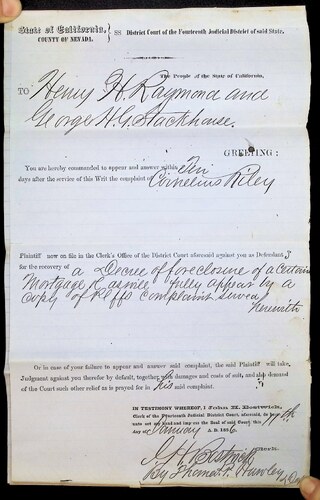 State of California,
COUNTY OF NEVADA.
SS District Court of the Fourteenth Judicial District of said State.
The People of the State of California,
TO Henry H. Raymond and
George H. G. Stackhouse.
GREETING:
You are hereby commanded to appear and answer within Ten
days after the service of this Writ the complaint of Cornelius Riley
Plaintiff now on file in the Clerk's Office of the District Court aforesaid against you as Defendant s
for the recovery of a Decree of foreclosure of a Certain
Mortgage as will fully appear by a
Copy of Plffs Complaint served
herewith
Or in case of your failure to appear and answer said complaint, the said Plaintiff will take
Judgment against you therefor by default, together with damages and costs of suit, and also demand
of the Court such other relief as is prayed for in his said complaint.
IN TESTIMONY WHEREOF, I John H. Bostwick,
Clerk of the Fourteenth Judicial District Court aforesaid, do hereunto
set my hand and impress the Seal of said Court this 11th
day of January A. D. 186
J H Bostwick Clerk.
By Thomas P. Hawley